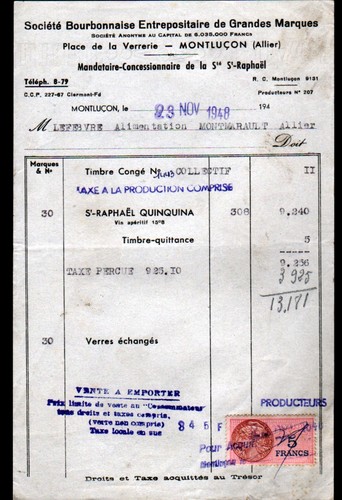 Société Bourbonnaise Entrepositaire de Grandes Marques
Société Anonyme au Capital de 6.035.000 Francs
Place de la Verrerie — MONTLUÇON (Allier)
Mandataire-Concessionnaire de la Sté St-Raphaël
Téléph. 8-79
R. C. Montluçon 9151
C.C.P. 227-67 Clermont-Fd
Producteurs N° 207
MONTLUÇON, le 23 NOV 1948 194
M LEFEBVRE Alimentation MONTMARAULT Allier
Doit
Marques & N°
Timbre Congé N° COLLECTIF 11
TAXE A LA PRODUCTION COMPRISE
30 St-RAPHAËL QUINQUINA 308 9.240
Vin apéritif
Timbre-quittance 5
9.256
TAXE PERCUE 925.10 3925
13,171
30 Verres échangés
VENTE A EMPORTER
Prix limite de vente au "Consommateur"
tous droits et taxes compris,
(verre non compris)
Taxe locale en sus
PRODUCTEURS
Pour Acquit
5
FRANCS
Droits et Taxe acquittés au Trésor